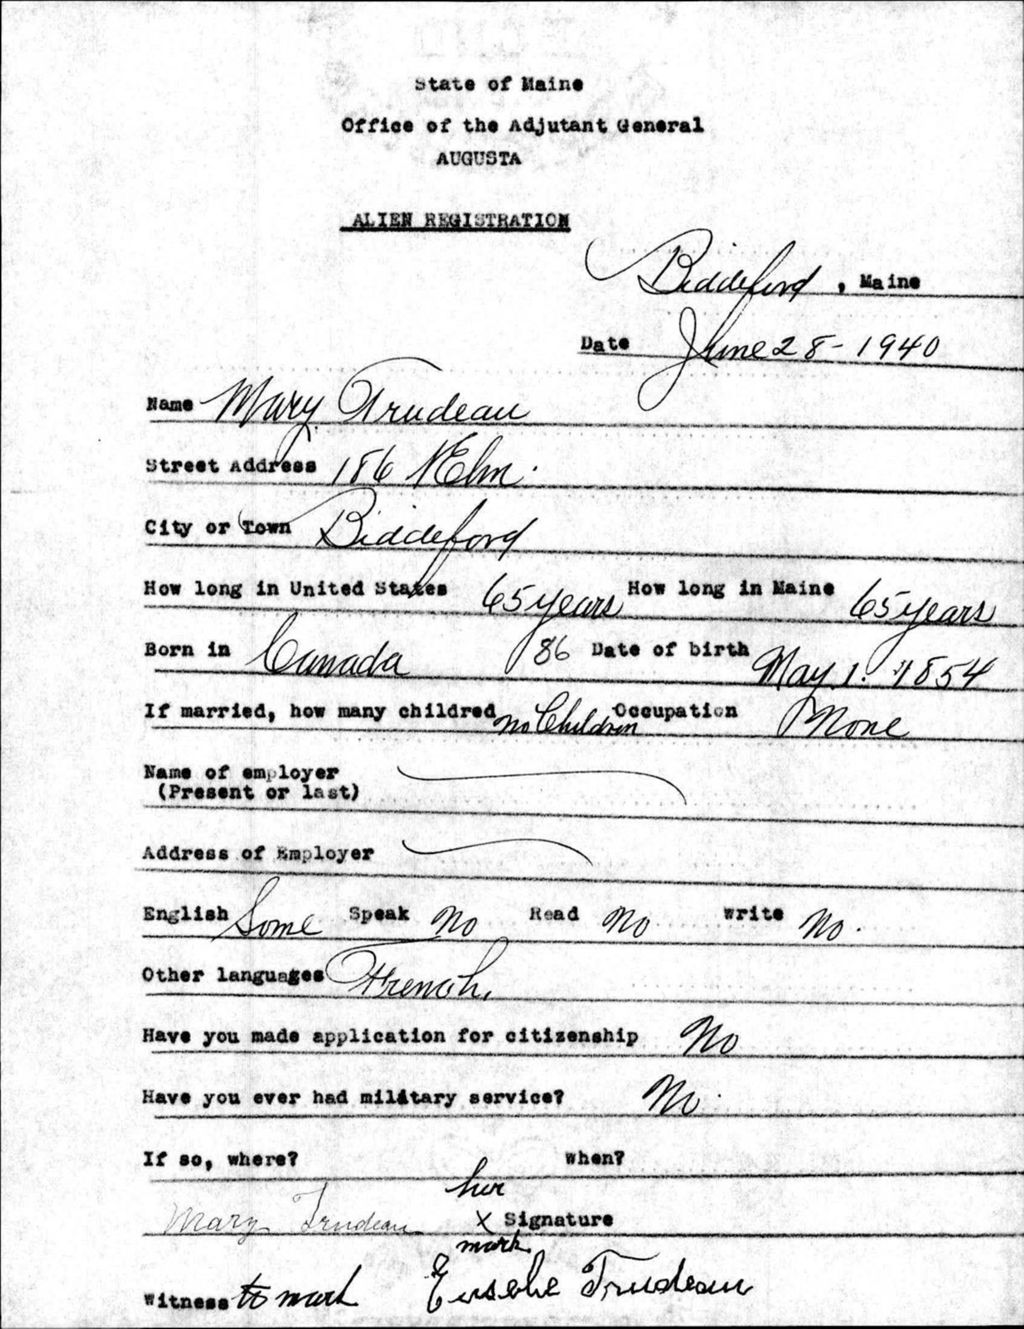 State of Maine
Office of the Adjutant General
AUGUSTA
ALIEN REGISTRATION
Biddeford, Maine
Date June 28-1940
Name Mary Trudeau
Street Address 186 N Elm.
City or Town Biddeford
How long in United States 65 years How long in Maine 65 years
Born in Canada 86 Date of birth May. 1. 1854
If married, how many childred no Children Occupation None
Name of employer
(Present or last)
Address of Employer
English Some Speak No Read No Write No.
Other languages French.
Have you made application for citizenship No
Have you ever had military service? No.
If so, where? When?
her
Mary Trudeau X Signature
mark
Witness to mark Eusebe Trudeau